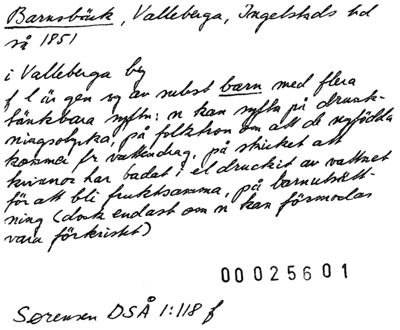 Barnabäck, Valleberga, Ingelstads hd
så 1851
i Valleberga by
f l är gen sg av subst barn med flera
tänkbara syftn: n kan syfta på drunk-
ningsolycka, på folktron om att de nyfödda
kommer fr vattendrag, på skicket att
kvinnor har badat i el druckit av vattnet
för att bli fruktsamma, på barnutsätt-
ning (dock endast om n kan förmodas
vara förkristet)
00025601
Sørensen DSÅ 1:118 f